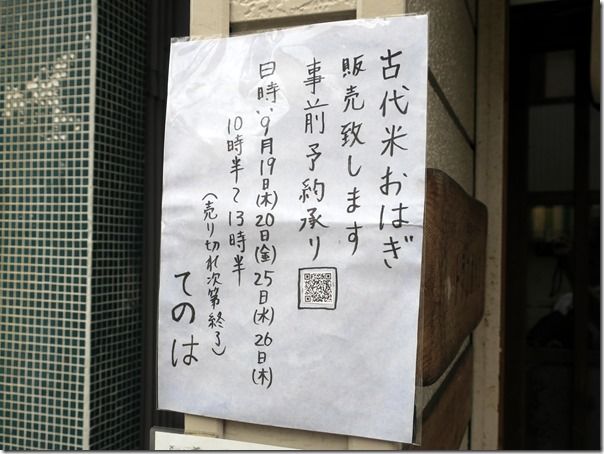 古代米おはぎ
販売致します
事前予約承り
日時:9月19日(木)20日(金)25日(水)26日(木)
10時半〜13時半
(売り切れ次第終了)
てのは